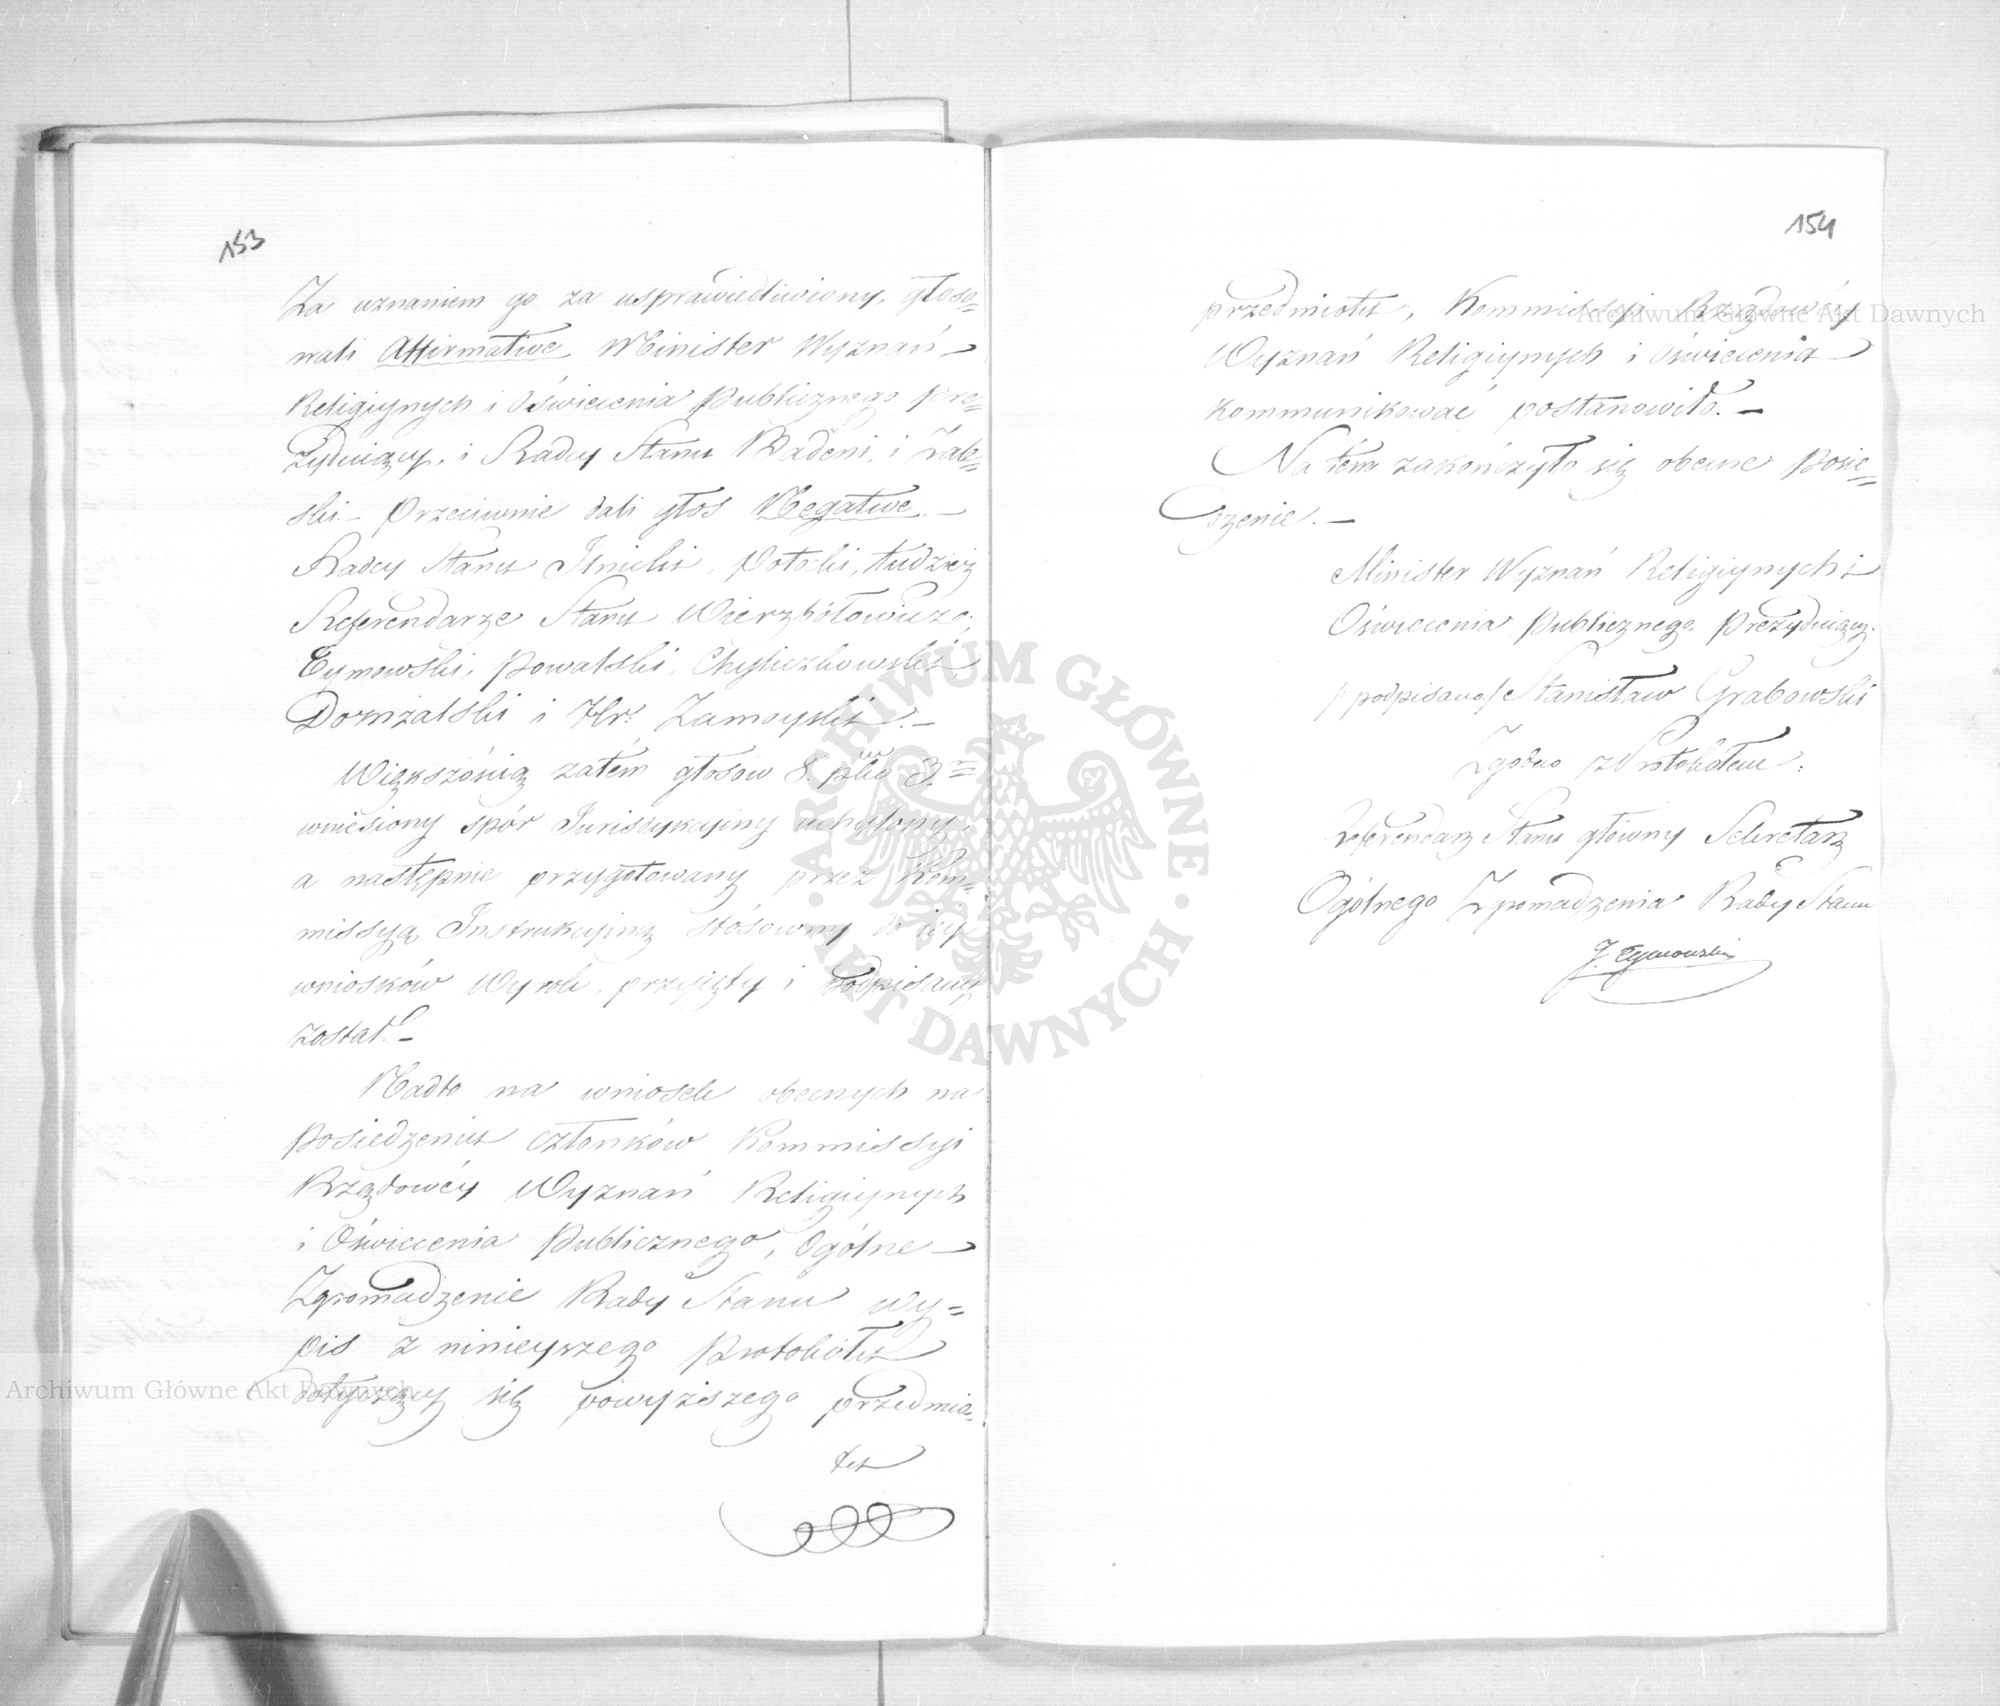 153
Za uznaniem go za usprawiedliwiony, głoso=
wali Affirmative Minister Wyznań
Religiynych i Oświecenia Publicznego pre=
zyduiący, i Radcy Stanu Badeni, i Zale=
ski. Przeciwnie dali głos Negative
Radcy Stanu Potocki, tudzież
Referendarze Stanu Wierzbołowicz,
Tymowski, Powalski, Chyliczkowski,
Domżalski i Hr. Zamoyski.
Większością zatem głosów 8. 3.
wniesiony spór Iurisdykcyiny uchylony,
a następnie przygotowany przez Kom=
missyą Instrukcyiną stósowny do iey
wniosków Wyrok, przyięty i podpisany
został.
Nadto na wniosek obecnych na
Posiedzeniu członków Kommissyi
Rządowéy Wyznań Religiynych
i Oświecenia Publicznego, Ogólne
Zgromadzenie Rady Stanu wy=
pis z ninieyszego Protokółu
dotyczący się powyższego przedmio=
tu
154
przedmiotu, Kommissyi Rządowéy
Wyznań Religiynych i Oświecenia
kommunikować postanowiło.
Na tém zakończyło się obecne Posie=
dzenie.
Minister Wyznań Religiynych i
Oświecenia Publicznego Prezyduiący.
/podpisano/ Stanisław Grabowski
Zgodno z Protokółem:
Referendarz Stanu główny Sekretarz
Ogólnego Zgromadzenia Rady Stanu
J. Tymowski
Archiwum Główne Akt Dawnych
ARCHIWUM GŁÓWNE AKT DAWNYCH
Archiwum Główne Akt Dawnych